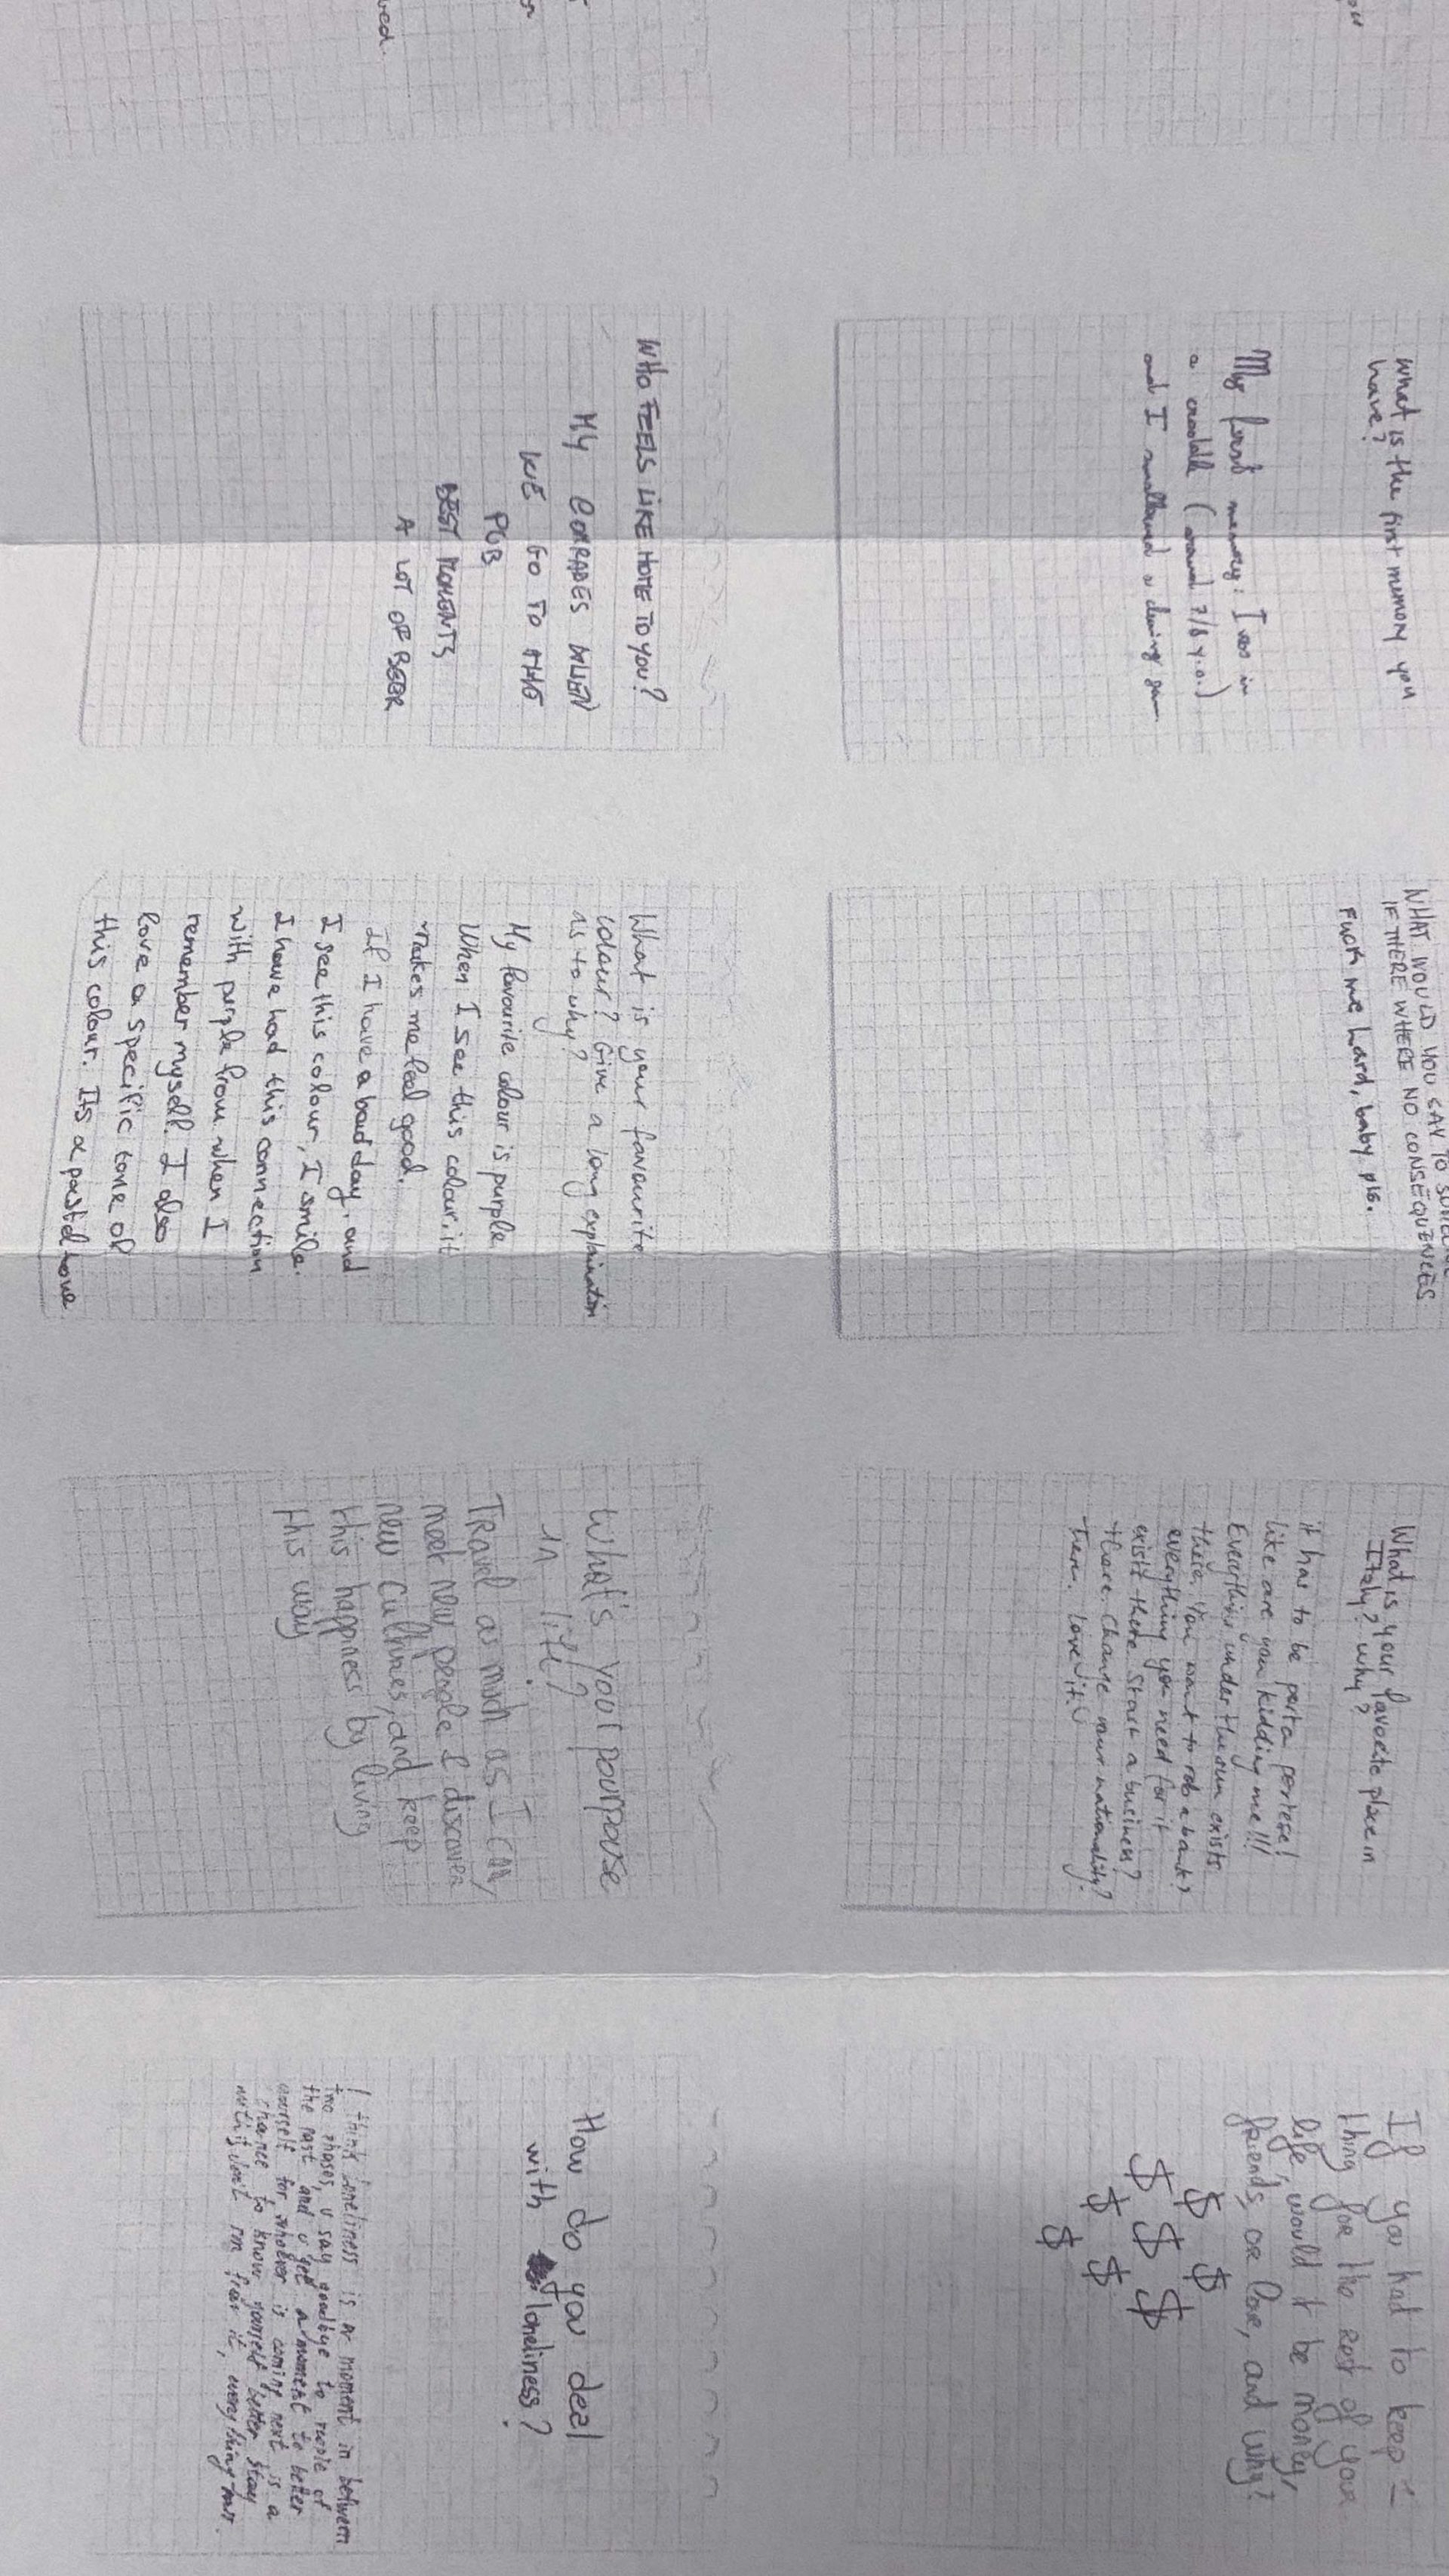 what is the first memory you
have?
My first memory: I was in
a (around 7/8 y.o.)
and I a
WHAT WOULD YOU SAY TO
IF THERE WHERE NO CONSEQUENCES
Fuck me hard, baby pls.
What is your favorite place in
Italy? why?
it has to be porta portese!
like are you kidding me!!!
Everything under the sun exists
there. You want to rob a bank?
everything you need for it
exists there. Start a business?
there. change your nationality?
there. Love it
If you had to keep 1
thing for the rest of your
life, would it be money,
friends, or love, and why?
$ $
$ $ $
$ $
$
ved.
WHO FEELS LIKE HOME TO YOU?
MY COMRADES WHEN
WE GO TO THE
PUB
BEST MOMENTS
A LOT OF BEER
What is your favourite
colour? Give a long explaination
as to why?
My favourite colour is purple.
When I see this colour, it
makes me feel good.
If I have a bad day, and
I see this colour, I smile.
I have had this connection
with purple from when I
remember myself. I also
love a specific tone of
this colour. Its a pastel tone
What's your pourpouse
in life?
Travel as much as I can,
meet new people & discover
new cultures, and keep
this happiness by living
this way
How do you deal
with loneliness?
I think loneliness is a moment in between
two phases, u say goodbye to people of
the past and u get a moment to better
yourself for whoever is coming next is a
chance to know yourself better stay
with it don't run from it, everything